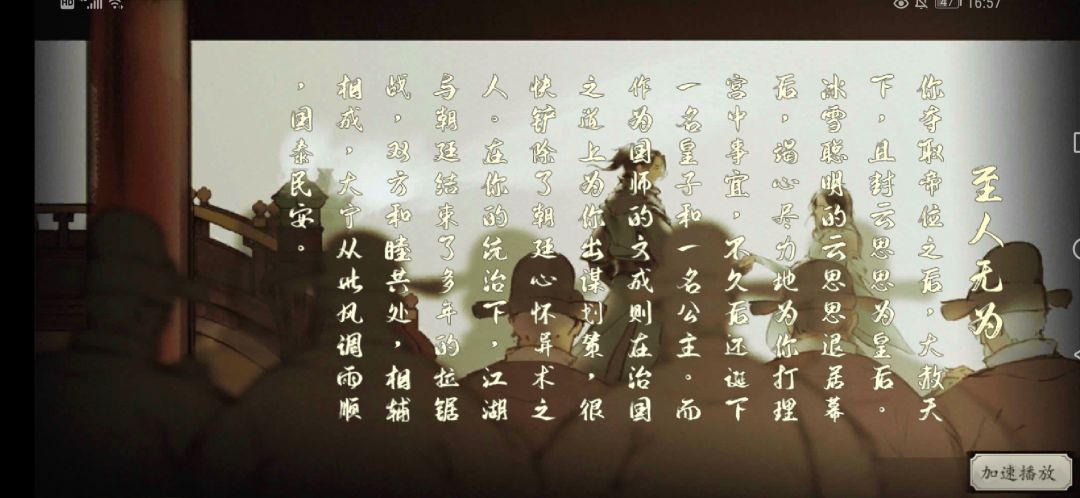 HD
47
16:57
至人无为
你夺取帝位之后，大赦天
下，且封云思思为皇后。
冰雪聪明的云思思退居幕
后，竭心尽力地为你打理
宫中事宜，不久后还诞下
一名皇子和一名公主。而
作为国师的文成则在治国
之道上为你出谋划策，很
快铲除了朝廷心怀异术之
人。在你的统治下，江湖
与朝廷结束了多年的拉锯
战，双方和睦共处，相辅
相成，大宁从此风调雨顺
，国泰民安。
加速播放